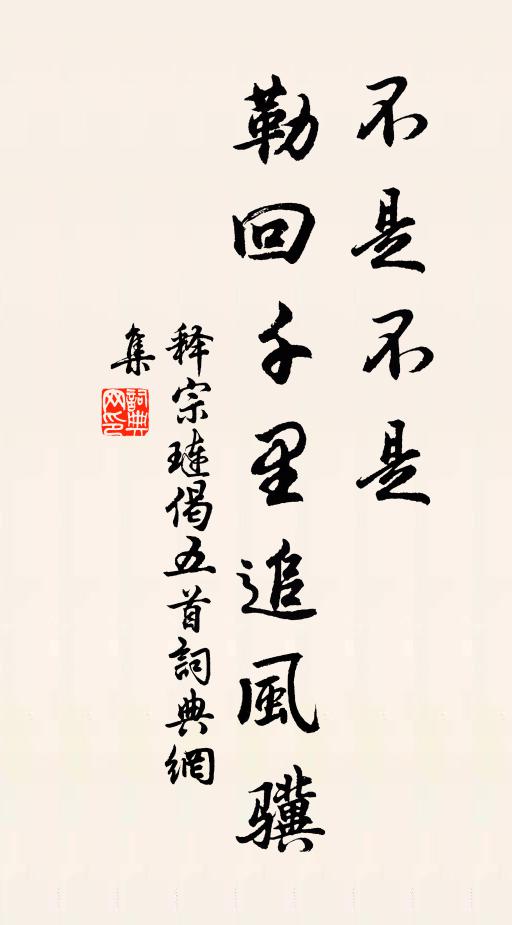 不是不是
勒回千里追風骥
释宗琏偈五首詞典網
集
詞典
网印